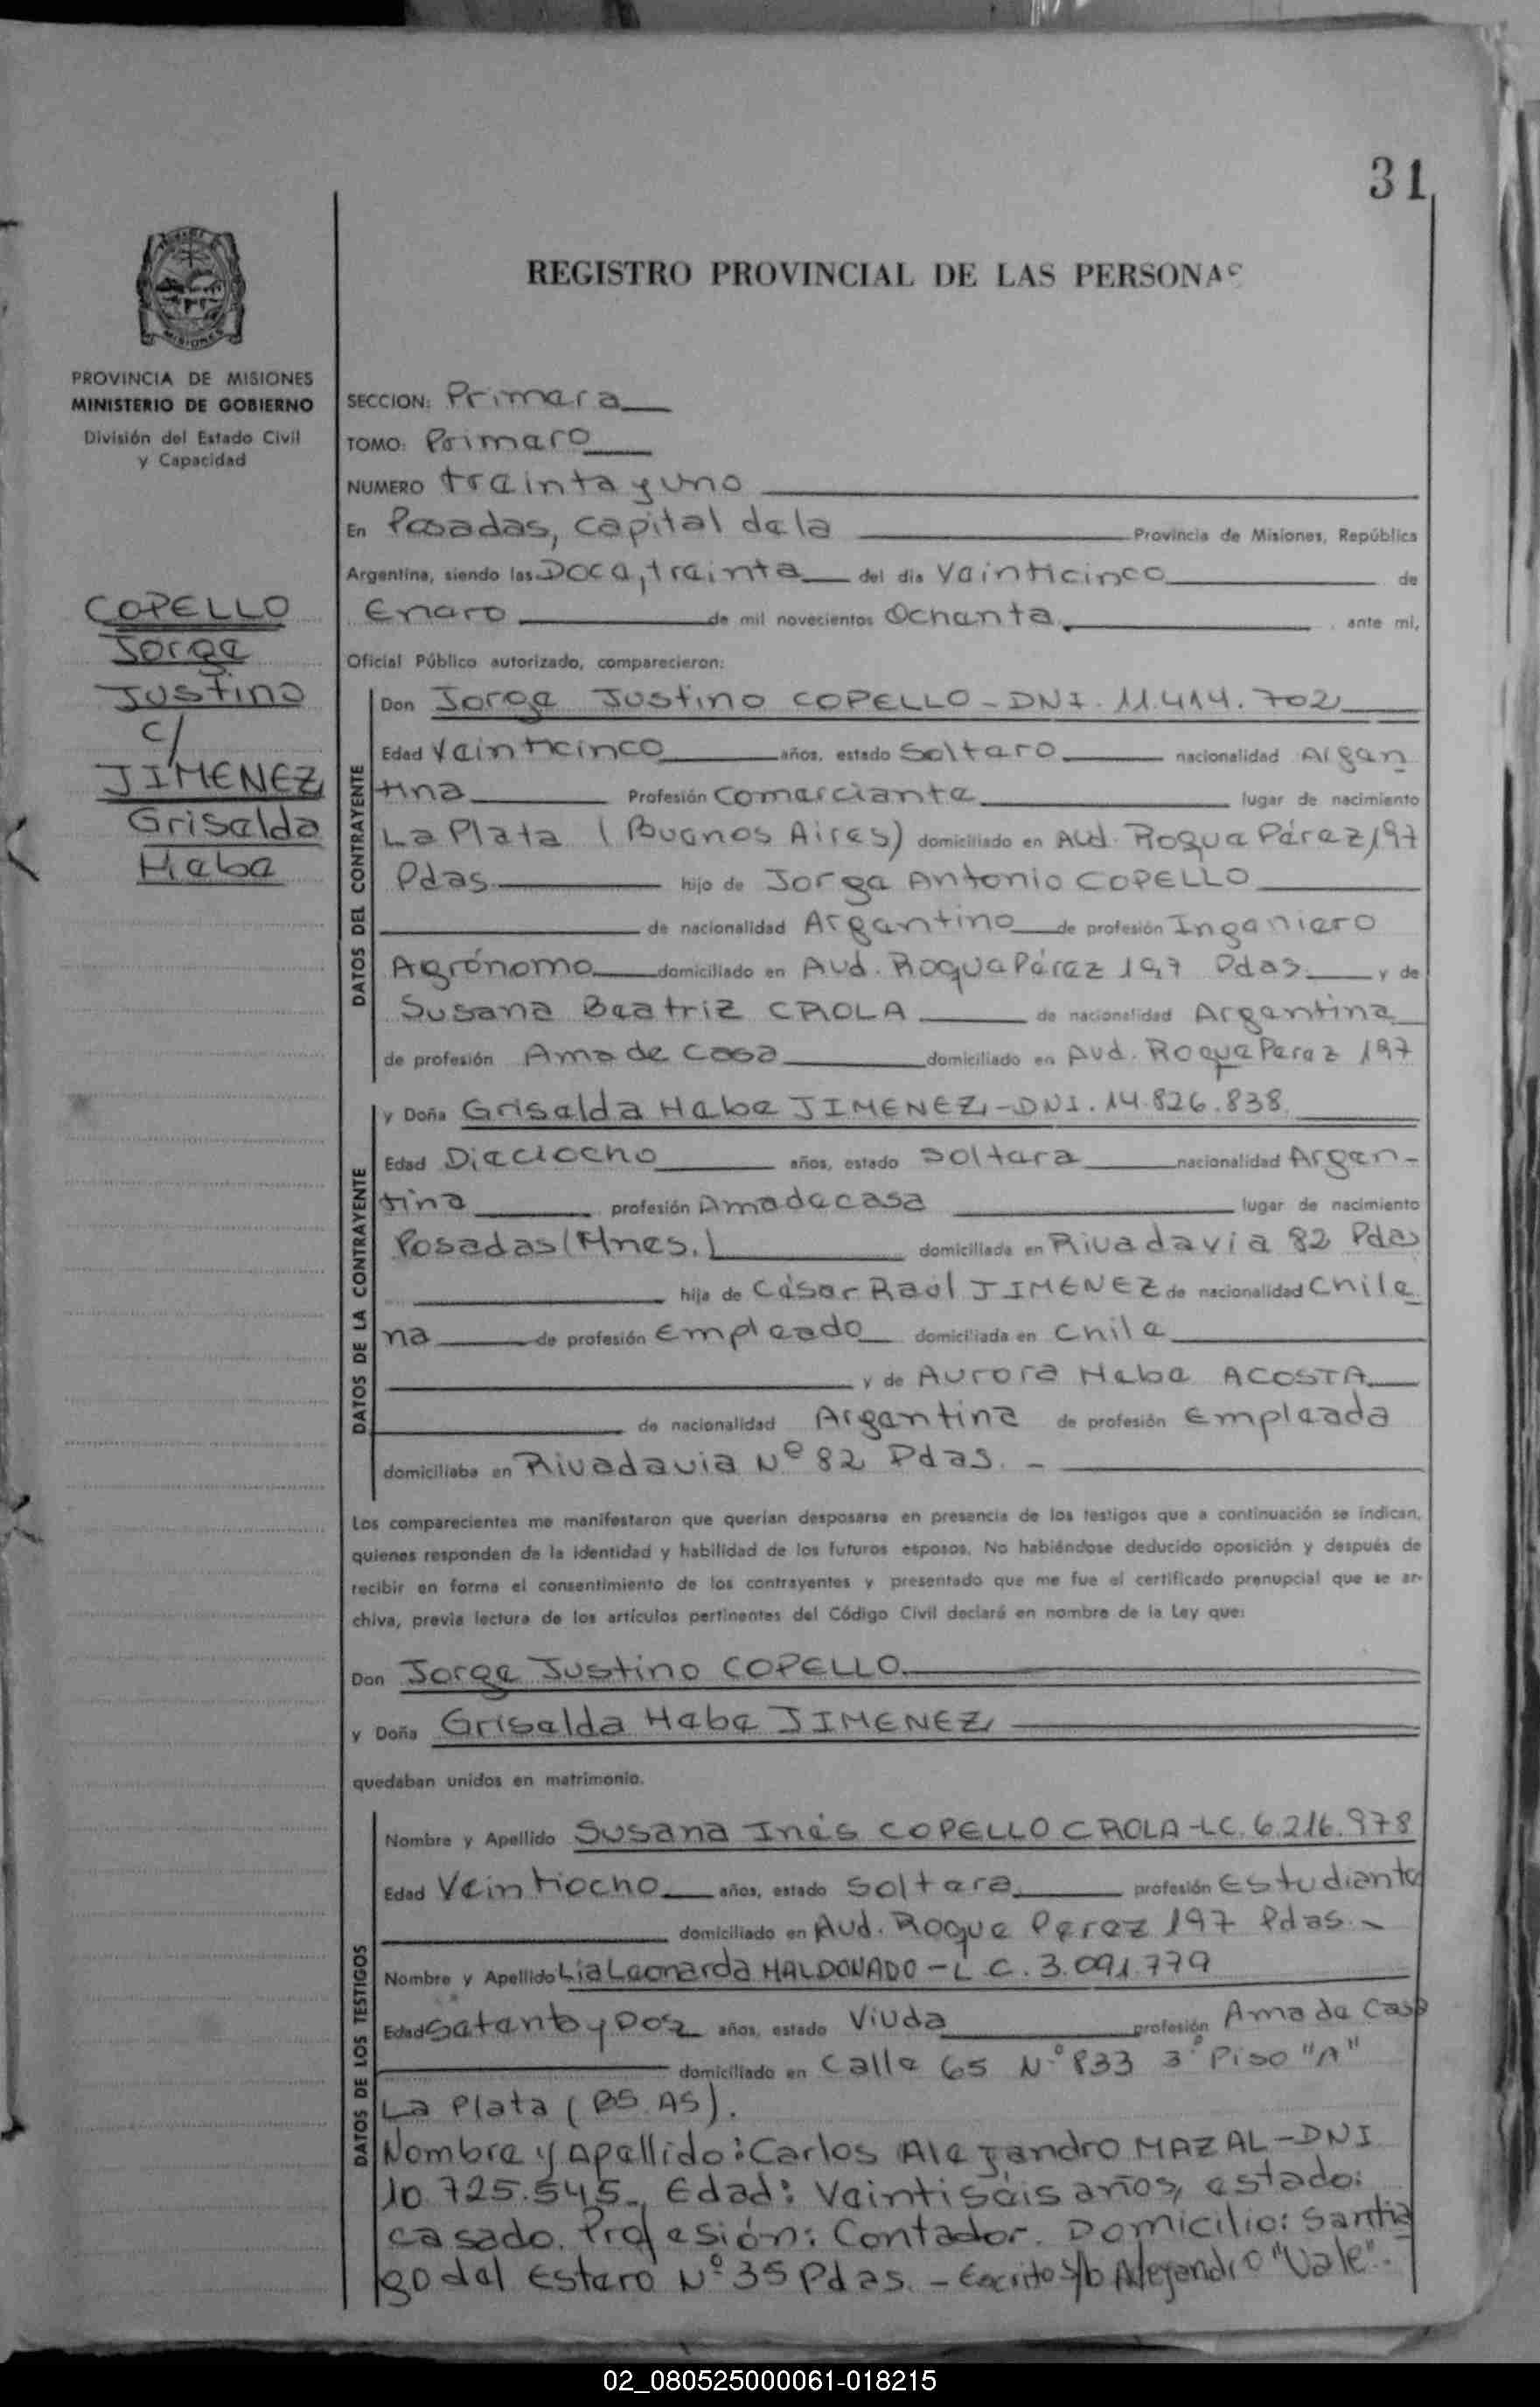 31
REGISTRO PROVINCIAL DE LAS PERSONAS
MISIONES
PROVINCIA DE MISIONES
MINISTERIO DE GOBIERNO
División del Estado Civil
y Capacidad
COPELLO
Jorge
Justino
c/
JIMENEZ
Griselda
Hebe
SECCION: Primera
TOMO: Primero
NUMERO treinta y uno
En Posadas, capital de la Provincia de Misiones, República
Argentina, siendo las Doce, treinta del día Veinticinco de
Enero de mil novecientos Ochenta, ante mi,
Oficial Público autorizado, comparecieron:
DATOS DEL CONTRAYENTE
Don Jorge Justino COPELLO - DNI. 11.414.702
Edad Veinticinco años, estado Soltero nacionalidad Argen
tina Profesión Comerciante lugar de nacimiento
La Plata (Buenos Aires) domiciliado en Avd. Roque Pérez 197
Pdas hijo de Jorge Antonio COPELLO
de nacionalidad Argentino de profesión Ingeniero
Agrónomo domiciliado en Avd. Roque Pérez 197 Pdas y de
Susana Beatriz CROLA de nacionalidad Argentina
de profesión Ama de Casa domiciliado en Avd. Roque Perez 197
DATOS DE LA CONTRAYENTE
y Doña Griselda Hebe JIMENEZ - DNI. 14.826.838
Edad Dieciocho años, estado Soltera nacionalidad Argen-
tina profesión Ama de casa lugar de nacimiento
Posadas (Mnes.) domiciliada en Rivadavia 82 Pdas
hija de César Raúl JIMENEZ de nacionalidad Chile
na de profesión Empleado domiciliada en Chile
y de Aurora Hebe ACOSTA
de nacionalidad Argentina de profesión Empleada
domiciliaba en Rivadavia Nº 82 Pdas. -
Los comparecientes me manifestaron que querían desposarse en presencia de los testigos que a continuación se indican,
quienes responden de la identidad y habilidad de los futuros esposos. No habiéndose deducido oposición y después de
recibir en forma el consentimiento de los contrayentes y presentado que me fue el certificado prenupcial que se ar-
chiva, previa lectura de los artículos pertinentes del Código Civil declaré en nombre de la Ley que:
Don Jorge Justino COPELLO
y Doña Griselda Hebe JIMENEZ
quedaban unidos en matrimonio.
DATOS DE LOS TESTIGOS
Nombre y Apellido Susana Inés COPELLO CROLA - LC. 6.216.978
Edad Veintiocho años, estado Soltera profesión Estudiante
domiciliado en Avd. Roque Perez 197 Pdas. -
Nombre y Apellido Lia Leonarda MALDONADO - L C. 3.091.779
Edad Setenta y Dos años, estado Viuda profesión Ama de Casa
domiciliado en Calle 65 Nº 833 3º Piso "A"
La Plata (BS. AS).
Nombre y Apellido: Carlos Alejandro MAZAL - DNI
10.725.545., Edad: Veintiséis años, estado:
casado. Profesión: Contador. Domicilio: Santia
go del Estero Nº 35 Pdas. - Escrito s/b Alejandro "Vale".
02_080525000061-018215